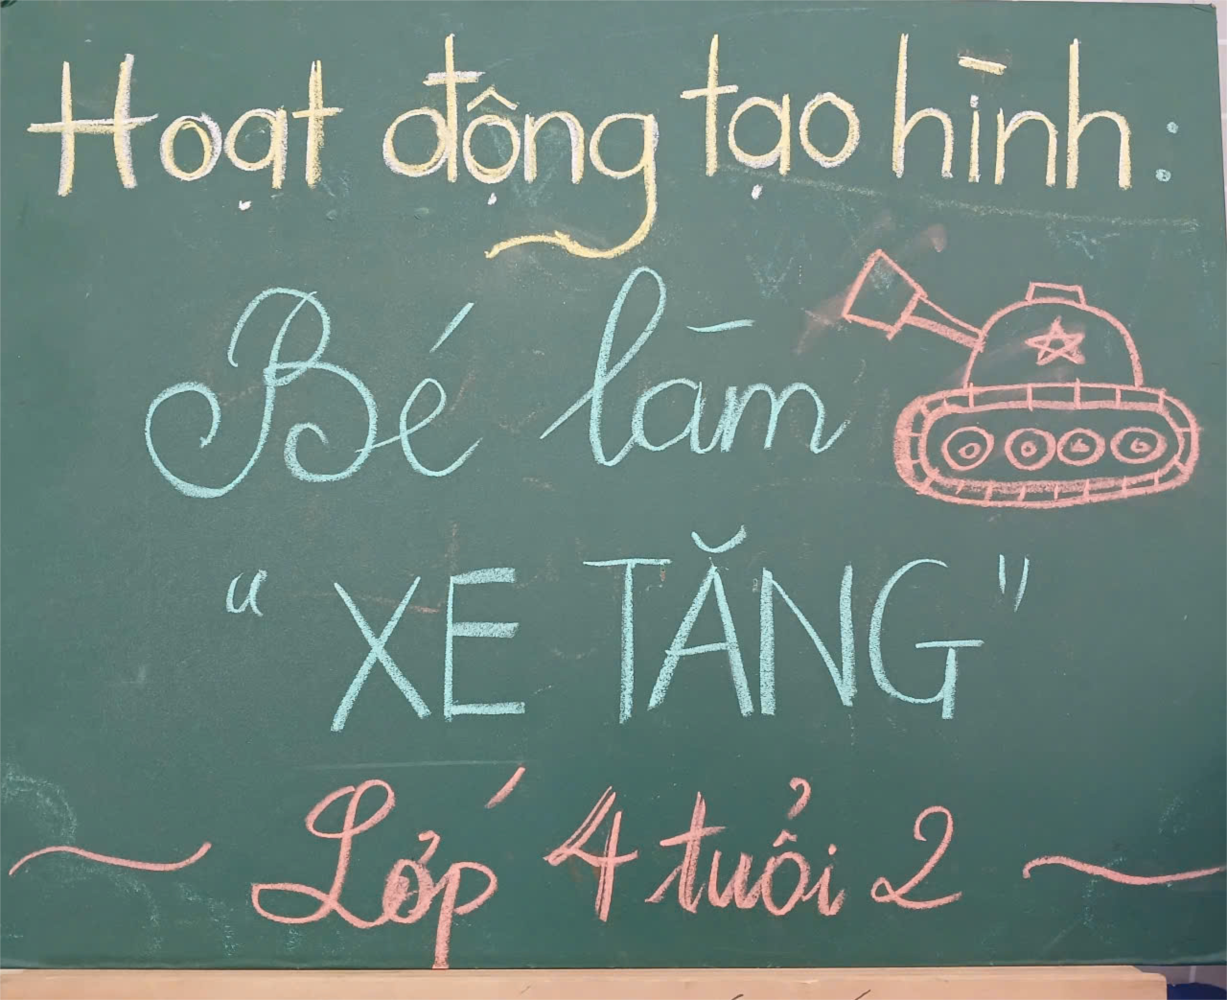 Hoạt động tạo hình:
Bé làm
"XE TĂNG"
Lớp 4 tuổi 2